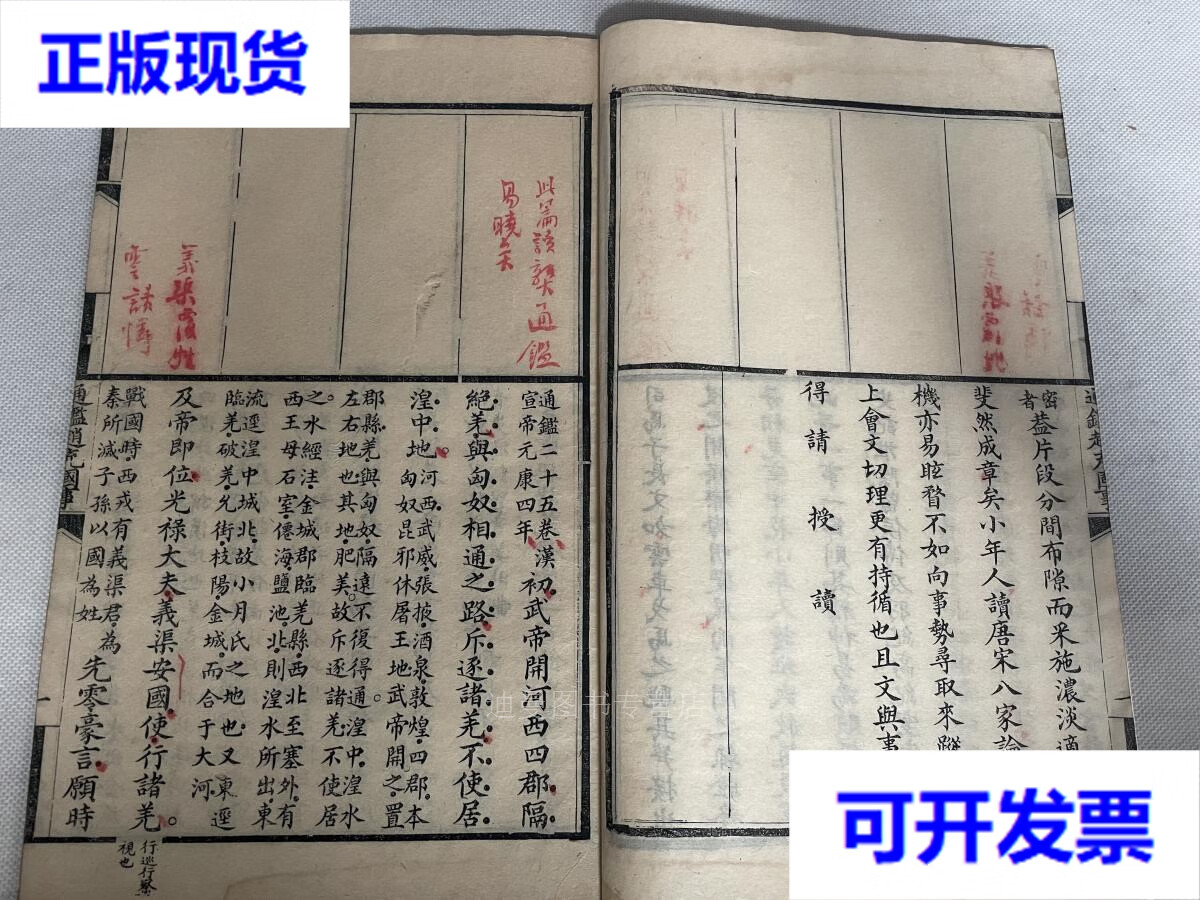 正版现货
密
者
蓋片段分間布隙而采施濃淡適
斐然成章矣小年人讀唐宋八家論
機亦易眩瞀不如向事勢尋取來蹤
上會文切理更有持循也且文與事
得請授讀
此篇讀熟通鑑
易曉矣
義渠
通鑑二十五卷漢
宣帝元康四年
初武帝開河西四郡隔
絕羌與匈奴相通之路斥逐諸羌不使居
湟中地
河西武威張掖酒泉敦煌四郡本
匈奴昆邪休屠王地武帝開之置
郡縣羌與匈奴隔遠不復得通湟中湟水
左右地也其地肥美故斥逐諸羌不使居
之水經注金城郡臨羌縣西北至塞外有
西王母石室僊海鹽池北則湟水所出東
流逕湟中城北故小月氏之地也又東逕
臨羌破羌允街枝陽金城而合于大河
及帝即位光祿大夫義渠安國使行諸羌
行巡行
視也
戰國時西戎有義渠君為
秦所滅子孫以國為姓
先零豪言願時
可开发票